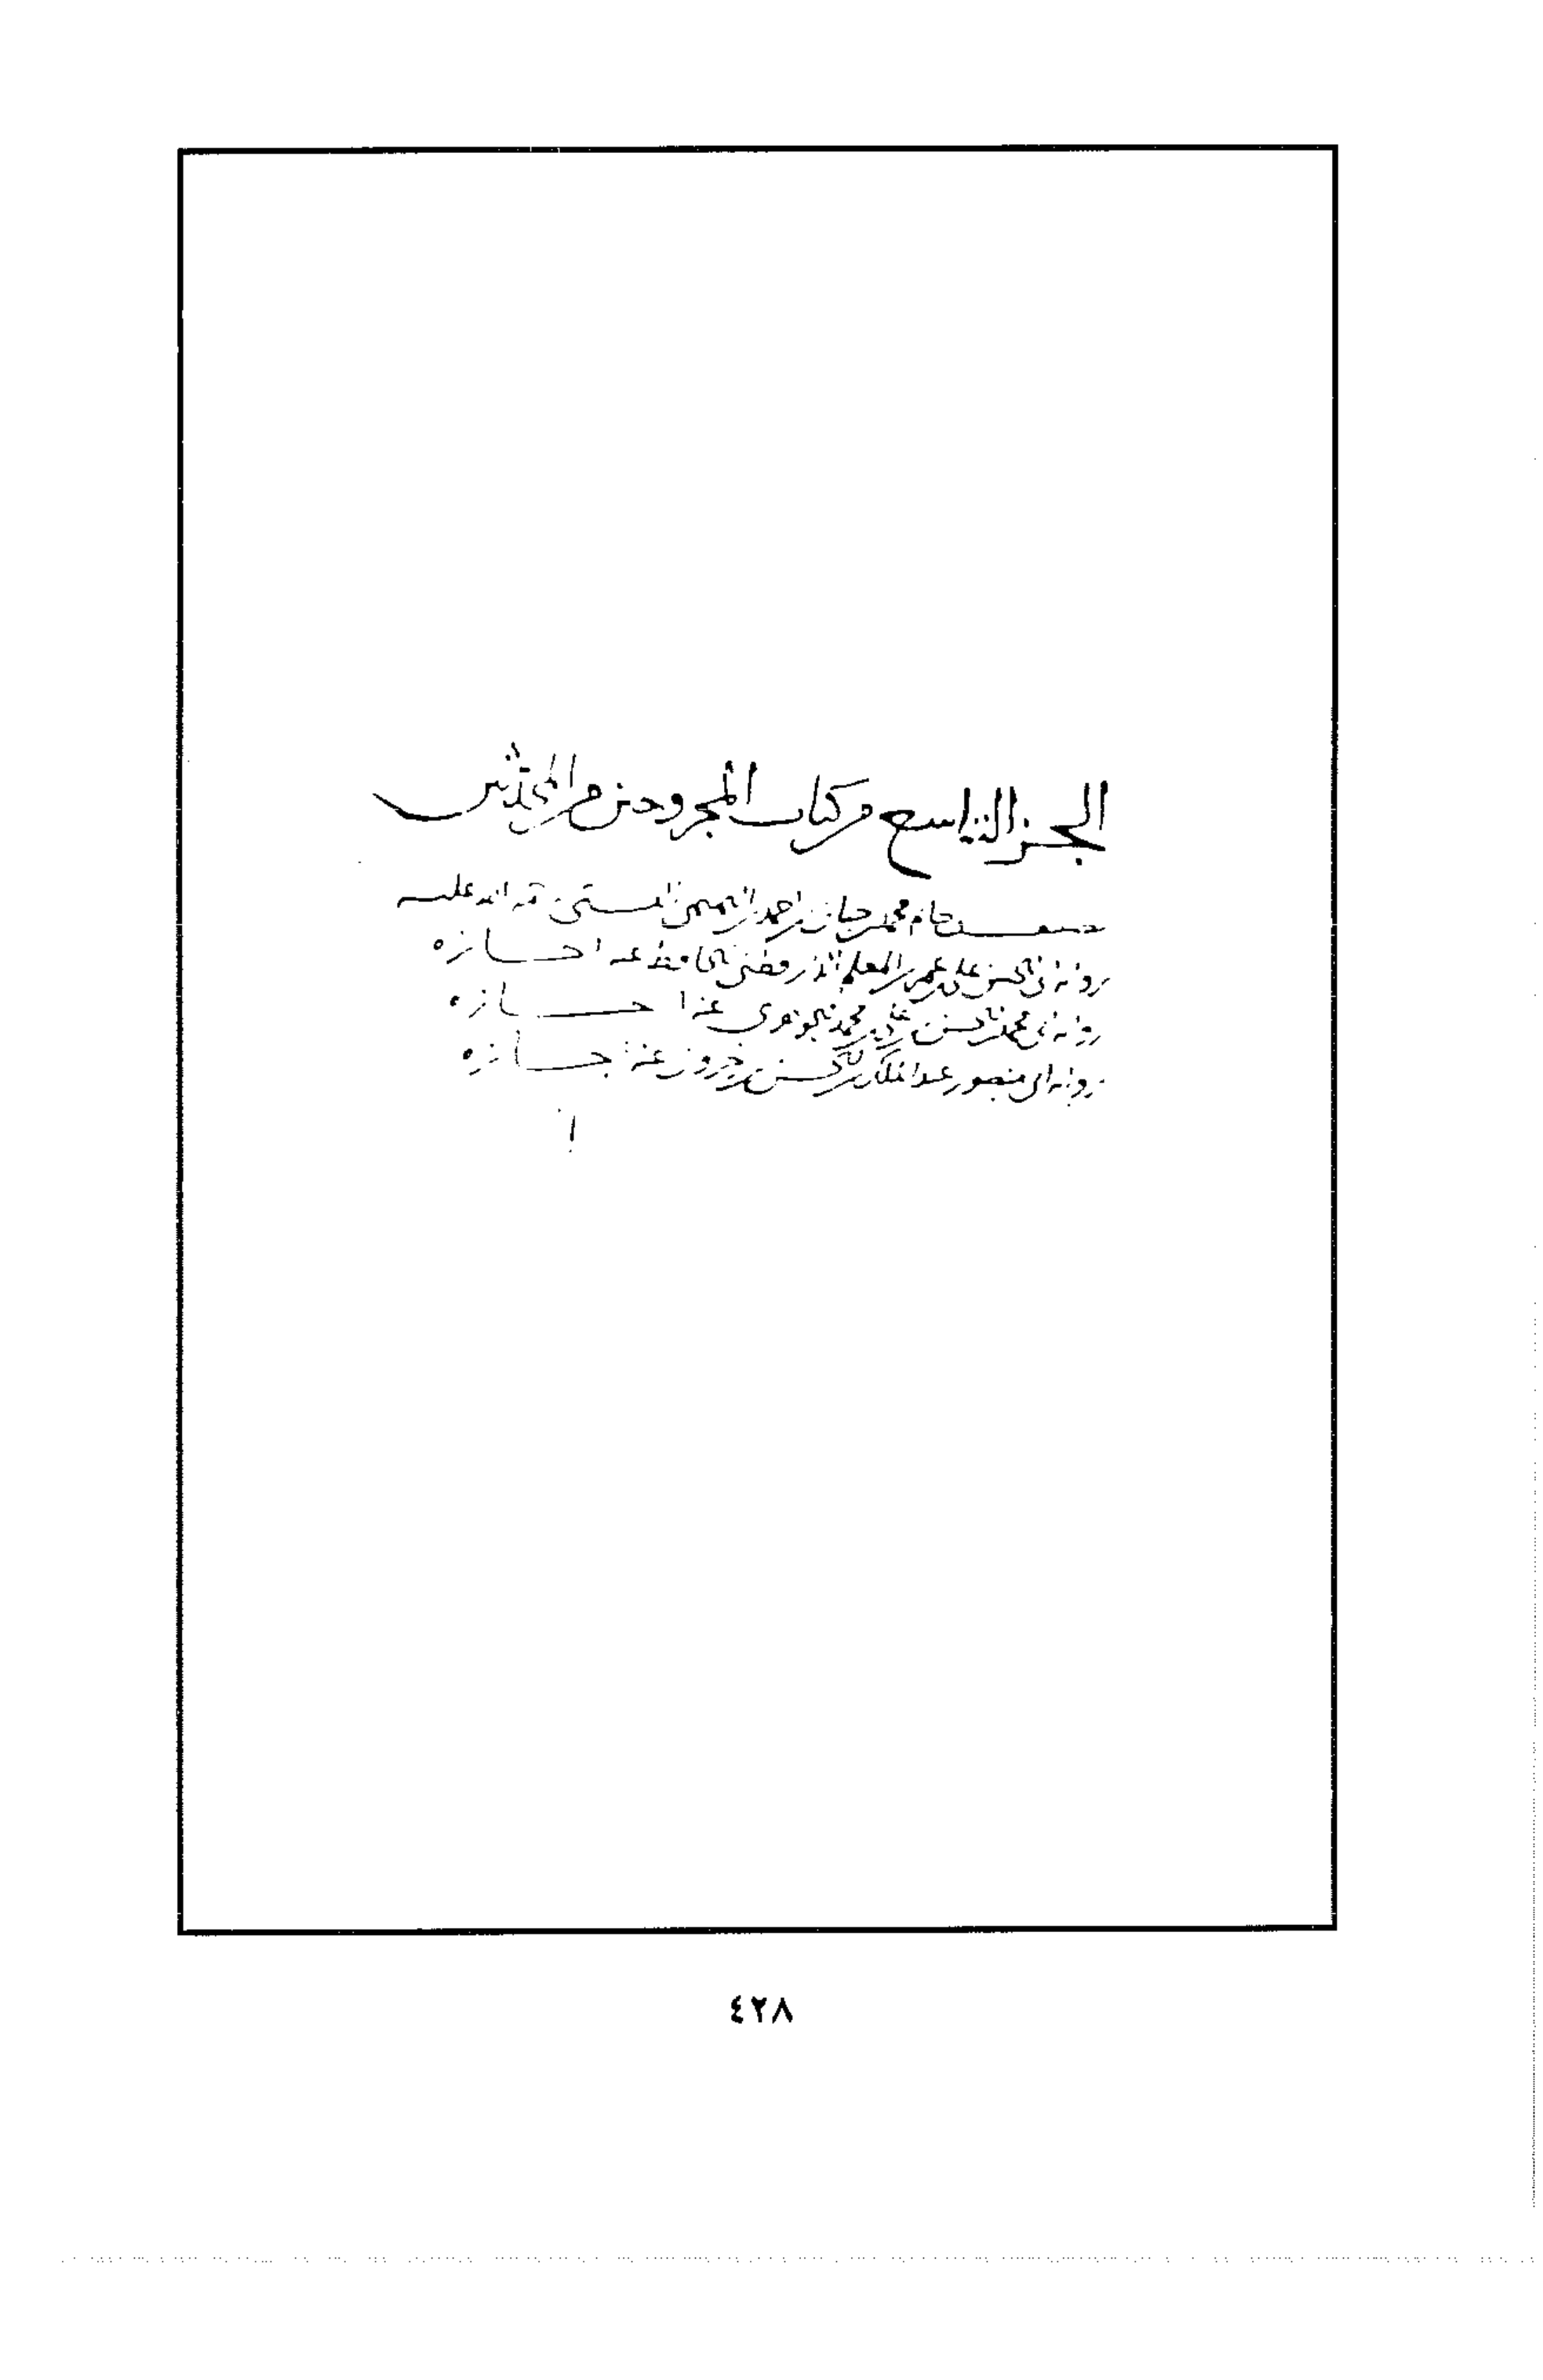 الجزء التاسع من كتاب المجروحين من المحدثين
تصنيف أبي حاتم محمد بن حبان بن أحمد التميمي البستي رحمة الله عليه
رواية أبي الحسن علي بن عمر الدارقطني الحافظ عنه اجازه
رواية أبي محمد الحسن بن علي بن محمد الجوهري عنه اجازه
رواية أبي منصور عبد الملك بن الحسن بن خيرون عنه اجازه
٤٢٨